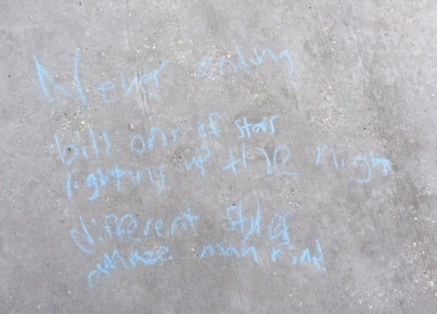 Never ending
bill ons of stars
lighting up the night
different styles
amaze man kind